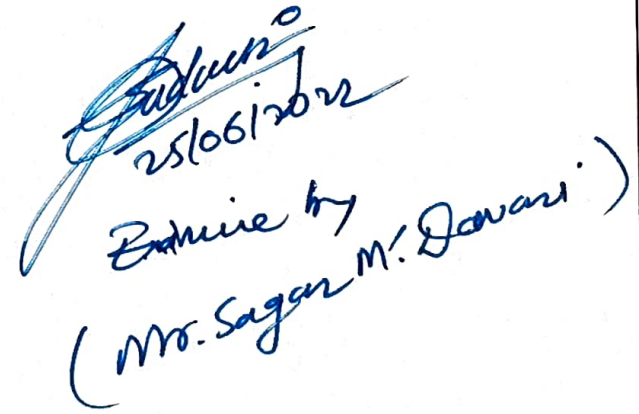 25/06/2022
Examine by
(Mr. Sagar M. Davari)